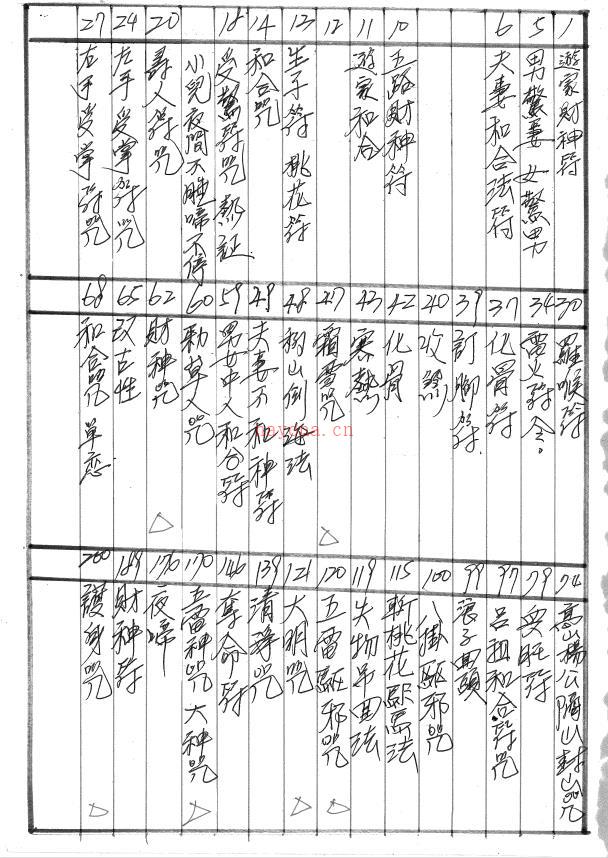 1 遊家財神符
5 男驚妻 女驚男
6 夫妻和合法符
10 五路財神符
11 遊家和合
12
13 生子符 桃花符
14 和合咒
18 受驚符咒 熱証
小兒夜間不睡啼不停
20 壽人符咒
24 左手 受掌符咒
27 右手 受掌符咒
30 羅喉符
34 雷火符令
37 化骨符
39 訂腳符
40 收驚
42 化骨
43 寒熱
47 霜雪咒 △
48 移山倒海法
49 夫妻不和神符
59 男女中人和合符
60 勅草人咒
62 財神咒 △
65 改古性
68 和合咒 單恋
74 高山楊公隔山封山咒
79 安胎符
97 呂祖和合符咒
99 浪子回頭
100 八掛驅邪咒
115 斬桃花驅寫法
119 失物吊回法
120 五雷驅邪咒 △
121 大明咒 △
139 清淨咒
146 奪命符
170 五雷神咒 大神咒 △
176 夜啼
189 財神符
200 護身咒 △
nayona.cn